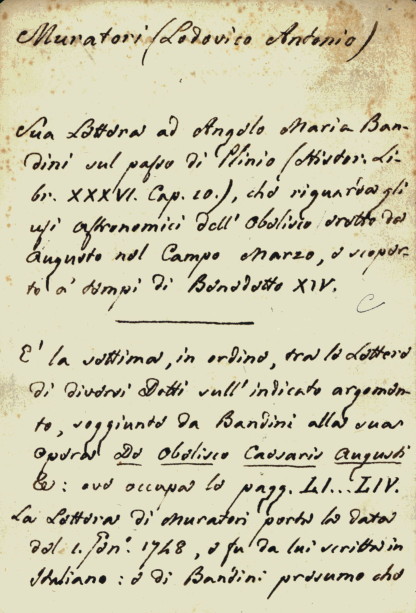 Muratori (Lodovico Antonio)
Sua Lettera ad Angelo Maria Ban-
dini sul passo di Plinio (Histor. Li-
br. XXXVI. Cap. 10.), che riguarda gli
usi astronomici dell' Obelisco eretto da
Augusto nel Campo Marzo, e scoper-
to a' tempi di Benedetto XIV.
E' la settima, in ordine, tra le Lettere
di diversi Dotti sull' indicato argomen-
to, soggiunte da Bandini alla sua
opera De Obelisco Caesaris Augusti
&c: ove occupa le pagg. LI...LIV.
La Lettera di Muratori porta la data
del 1. 1748, e fu da lui scritta in
Italiano: e di Bandini presumo che